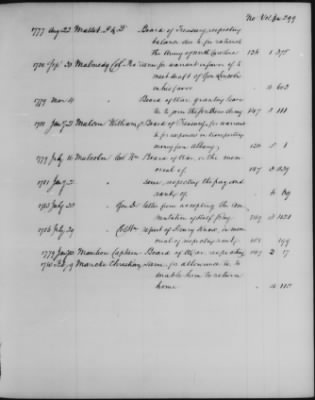 No Vol. Pa. 299
1777 Aug 22 Mallet P. & D. Board of Treasury, respecting
balance due to for rations to
the Army of North Carolina 136 1 375
1780 Sep 30 Malmedy Col. Same for warrant in favor of to
meet draft of Gen Lincoln
in his favor 4 603
1779 Mar 11 Board of War granting leave
to to join the Southern Army 147 3 111
Malcom William Board of Treasury, for warrant
to for expenses in transporting
money from Albany; 136 5 1
1779 July 16 Malcolm Col Wm Board of War, on the mem-
orial of 147 3 539
1781 Jany 2 same, respecting the pay and
rank of
July 30 Gen D. letter from accepting the com-
mutation of Half Pay
July 29 Col Wm report of Henry Knox, on mem-
orial of respecting rank, 151 179
1779 Captain Board of War, respecting 147 3 17
Christian Same, for allowance to, to
enable him to return
home